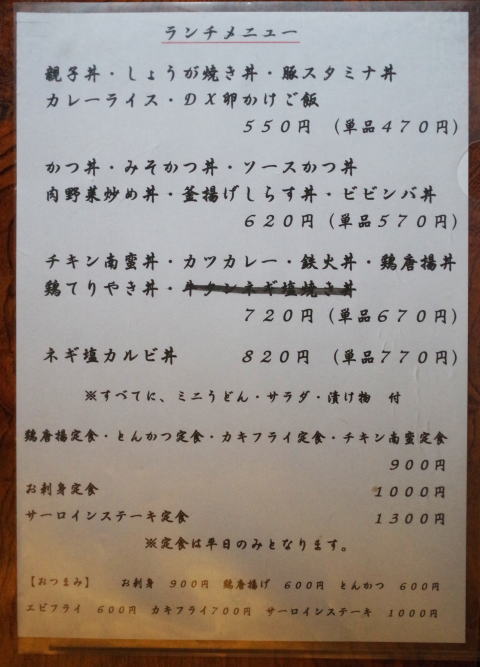 ランチメニュー
親子丼・しょうが焼き丼・豚スタミナ丼
カレーライス・DX卵かけご飯
550円 (単品470円)
かつ丼・みそかつ丼・ソースかつ丼
肉野菜炒め丼・釜揚げしらす丼・ビビンバ丼
620円 (単品570円)
チキン南蛮丼・カツカレー・鉄火丼・鶏唐揚丼
鶏てりやき丼・牛タンネギ塩焼き丼
720円 (単品670円)
ネギ塩カルビ丼 820円 (単品770円)
※すべてに、ミニうどん・サラダ・漬け物 付
鶏唐揚定食・とんかつ定食・カキフライ定食・チキン南蛮定食
900円
お刺身定食 1000円
サーロインステーキ定食 1300円
※定食は平日のみとなります。
【おつまみ】 お刺身 900円 鶏唐揚げ 600円 とんかつ 600円
エビフライ 600円 カキフライ700円 サーロインステーキ 1000円